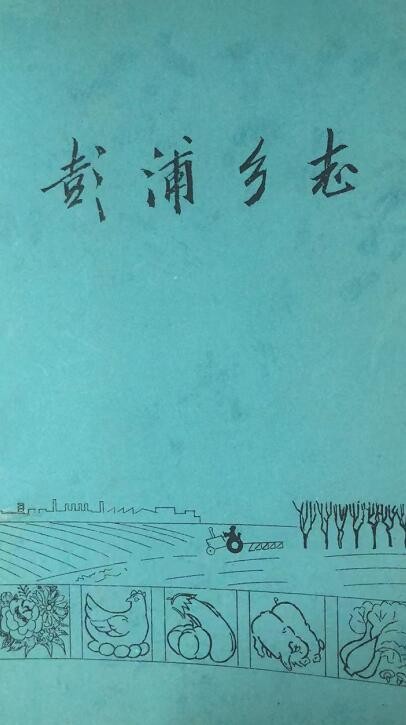 彭浦乡志